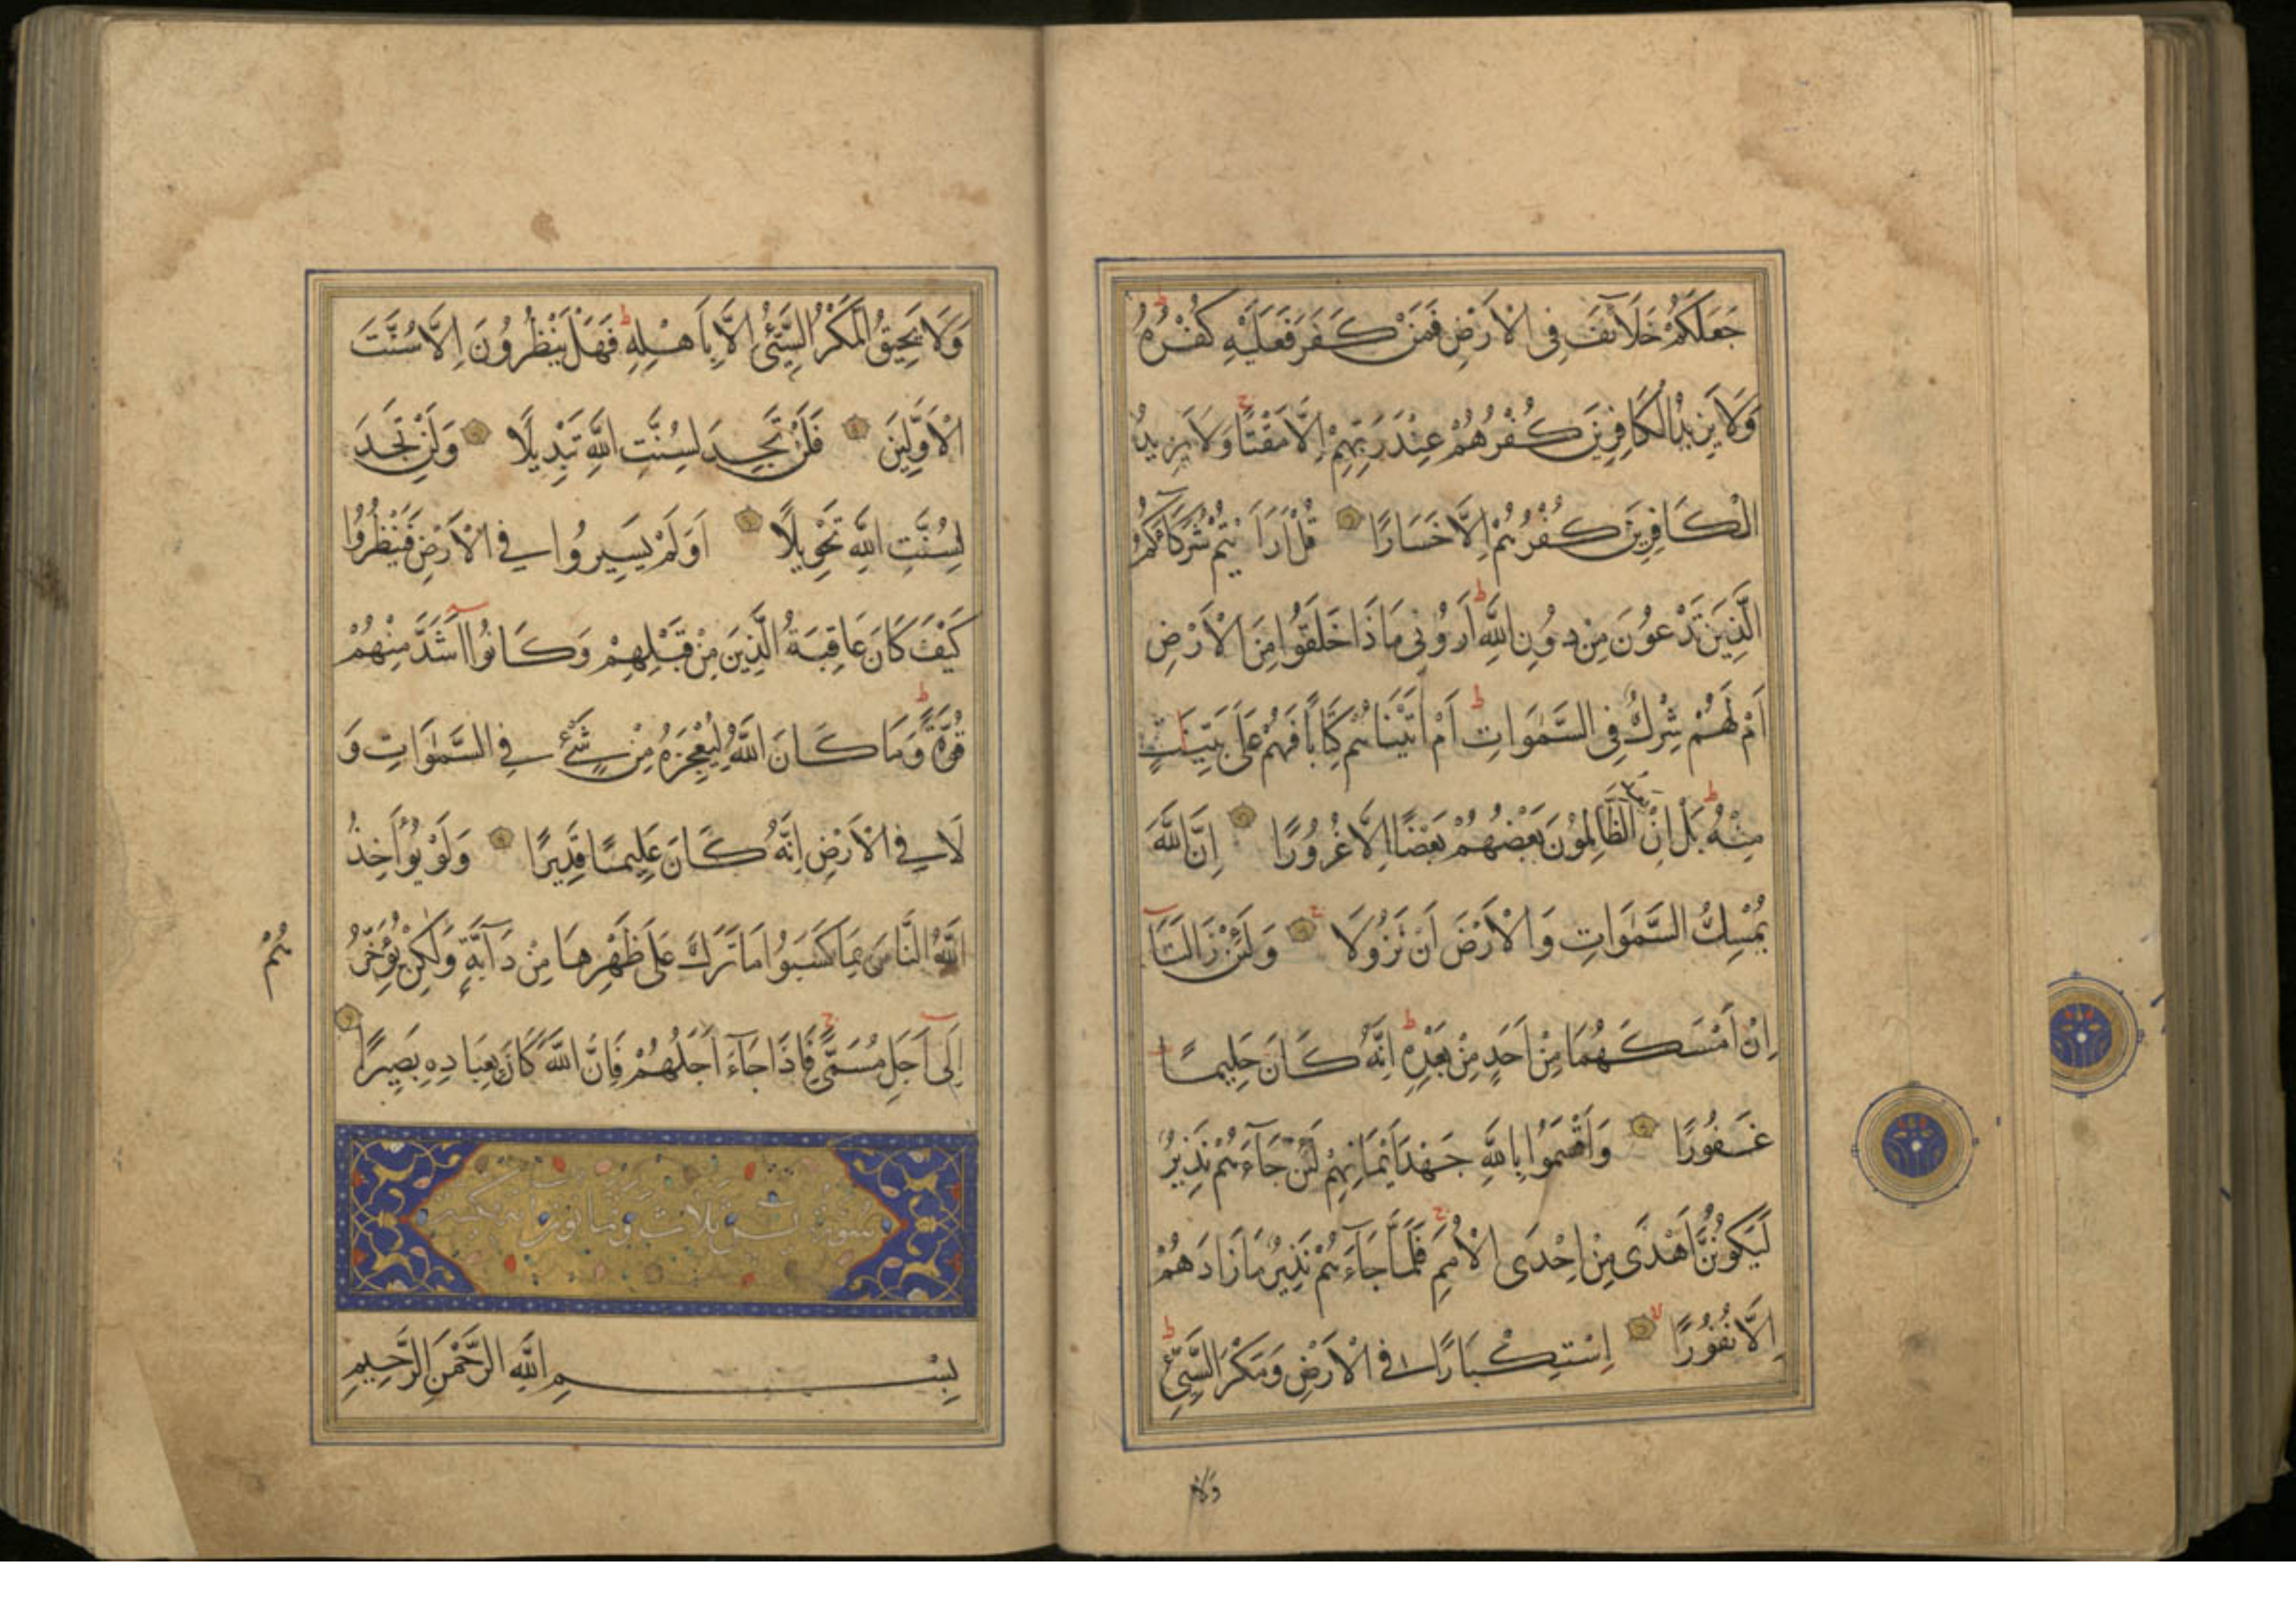 جَعَلَكُمْ خَلَآئِفَ فِى الْاَرْضِ فَمَنْ كَفَرَ فَعَلَيْهِ كُفْرُهُ ط
وَلَا يَزِيدُ الْكَافِرِينَ كُفْرُهُمْ عِنْدَ رَبِّهِمْ اِلَّا مَقْتًا ج وَلَا يَزِيدُ
الْكَافِرِينَ كُفْرُهُمْ اِلَّا خَسَارًا قُلْ اَرَاَيْتُمْ شُرَكَاءَكُمُ
الَّذِينَ تَدْعُونَ مِنْ دُونِ اللّٰهِ ط اَرُونِى مَاذَا خَلَقُوا مِنَ الْاَرْضِ
اَمْ لَهُمْ شِرْكٌ فِى السَّمٰوَاتِ ط اَمْ اٰتَيْنَاهُمْ كِتَابًا فَهُمْ عَلَى بَيِّنَتٍ
مِنْهُ ط بَلْ اِنْ يَعِدُ الظَّالِمُونَ بَعْضُهُمْ بَعْضًا اِلَّا غُرُورًا اِنَّ اللّٰهَ
يُمْسِكُ السَّمٰوَاتِ وَالْاَرْضَ اَنْ تَزُولَا ج وَلَئِنْ زَالَتَا
اِنْ اَمْسَكَهُمَا مِنْ اَحَدٍ مِنْ بَعْدِهِ ط اِنَّهُ كَانَ حَلِيمًا
غَفُورًا وَاَقْسَمُوا بِاللّٰهِ جَهْدَ اَيْمَانِهِمْ لَئِنْ جَآءَهُمْ نَذِيرٌ
لَيَكُونُنَّ اَهْدَى مِنْ اِحْدَى الْاُمَمِ ج فَلَمَّا جَآءَهُمْ نَذِيرٌ مَا زَادَهُمْ
اِلَّا نُفُورًا لا اِسْتِكْبَارًا فِى الْاَرْضِ وَمَكْرَ السَّيِّئِ ط
وَلَا
وَلَا يَحِيقُ الْمَكْرُ السَّيِّئُ اِلَّا بِاَهْلِهِ ط فَهَلْ يَنْظُرُونَ اِلَّا سُنَّتَ
الْاَوَّلِينَ فَلَنْ تَجِدَ لِسُنَّتِ اللّٰهِ تَبْدِيلًا وَلَنْ تَجِدَ
لِسُنَّتِ اللّٰهِ تَحْوِيلًا اَوَلَمْ يَسِيرُوا فِى الْاَرْضِ فَيَنْظُرُوا
كَيْفَ كَانَ عَاقِبَةُ الَّذِينَ مِنْ قَبْلِهِمْ وَكَانُوا اَشَدَّ مِنْهُمْ
قُوَّةً ط وَمَا كَانَ اللّٰهُ لِيُعْجِزَهُ مِنْ شَىْءٍ فِى السَّمٰوَاتِ وَ
لَا فِى الْاَرْضِ اِنَّهُ كَانَ عَلِيمًا قَدِيرًا وَلَوْ يُؤَاخِذُ
اللّٰهُ النَّاسَ بِمَا كَسَبُوا مَا تَرَكَ عَلَى ظَهْرِهَا مِنْ دَآبَّةٍ وَلٰكِنْ يُؤَخِّرُ
هُمْ
اِلَى اَجَلٍ مُسَمًّى ج فَاِذَا جَآءَ اَجَلُهُمْ فَاِنَّ اللّٰهَ كَانَ بِعِبَادِهِ بَصِيرًا
سورة يس ثلاث وثمانون اية مكية
بِسْمِ اللّٰهِ الرَّحْمٰنِ الرَّحِيمِ